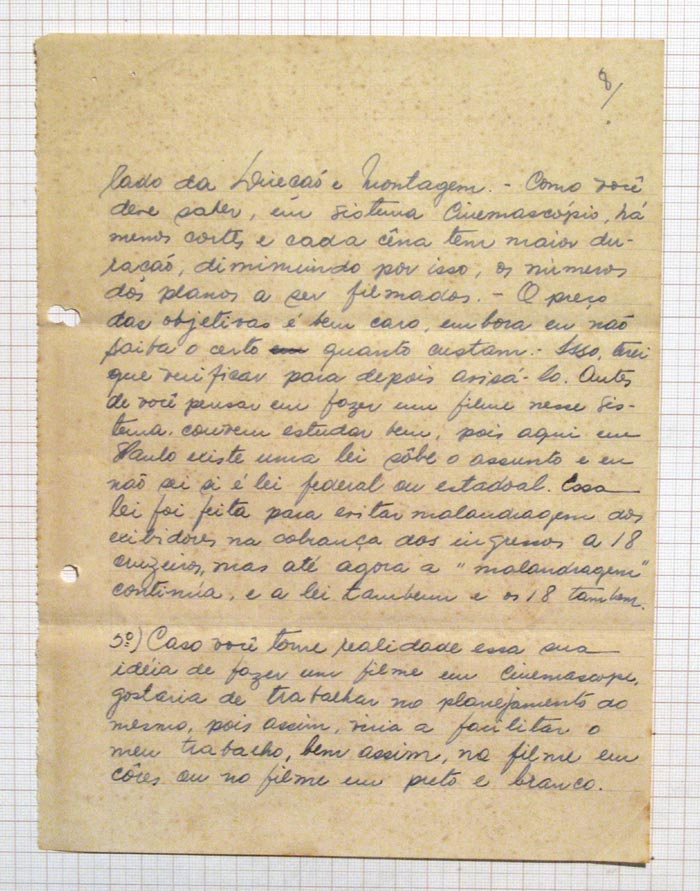 8/
lado da Direcaó e Montagem. - Como você
deve saber, em sistema Cinemascópio, há
menos cortes e cada cêna tem maior du-
ração, diminuindo por isso, os números
dos planos a ser filmados. - O preço
das objetivas é bem caro, embora eu não
saiba o certo quanto custam. - Isso, terei
que verificar para depois avisá-lo. Antes
de você pensar em fazer um filme nesse sis-
tema, convem estudar bem, pois aqui em
S. Paulo existe uma lei sôbre o assunto e eu
não sei si é lei federal ou estadoal. Essa
lei foi feita para evitar malandragem dos
exibidores na cobrança dos ingressos a 18
cruzeiros, mas até agora a "malandragem"
continúa, e a lei tambem e os 18 tambem.
5º) Caso você torne realidade essa sua
idéia de fazer um filme em Cinemascope,
gostaria de trabalhar no planejamento do
mesmo, pois assim, viria a facilitar o
meu trabalho, bem assim, no filme em
côres ou no filme em preto e branco.